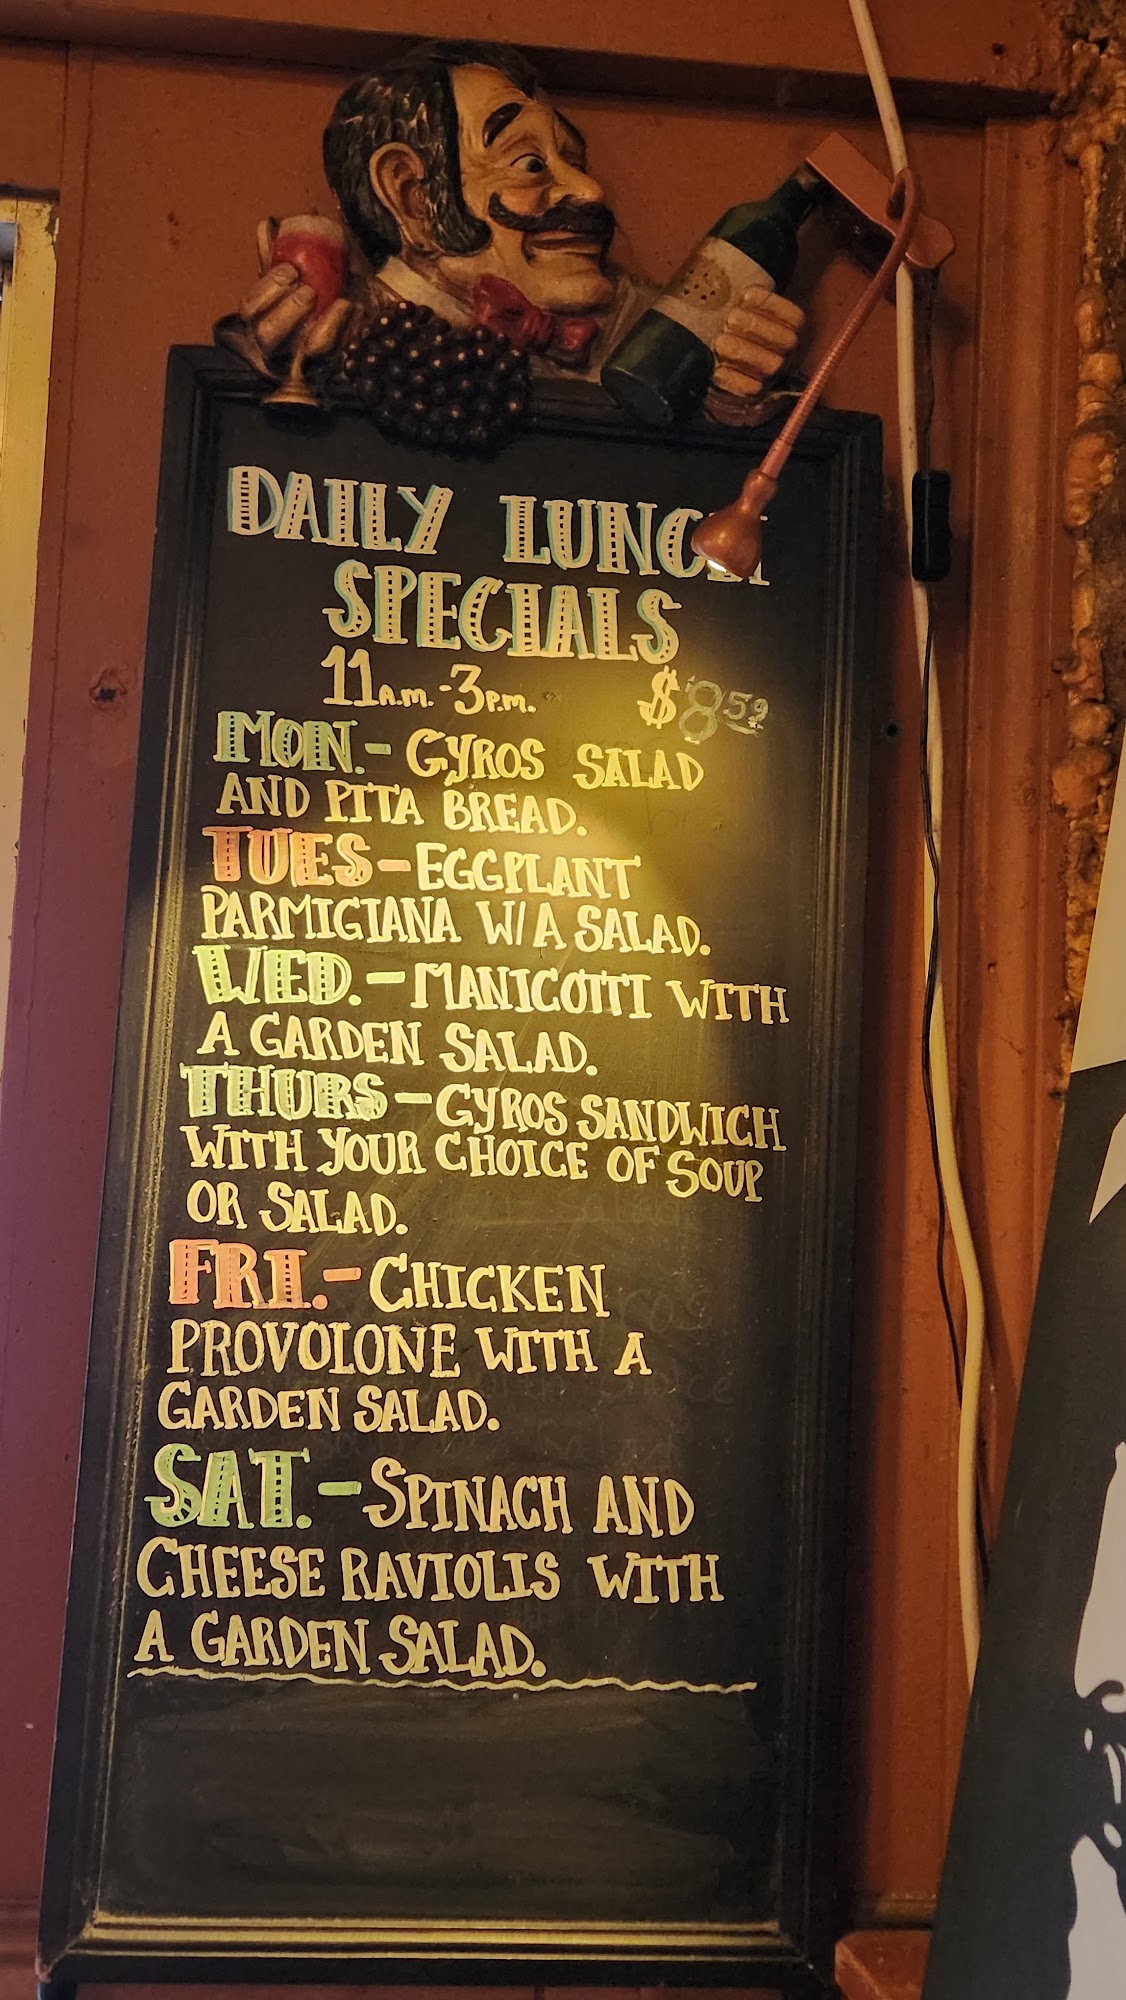 DAILY LUNCH
SPECIALS
11A.M.-3P.M. $8.59
MON.- GYROS SALAD
AND PITA BREAD.
TUES-EGGPLANT
PARMIGIANA W/A SALAD.
WED.-MANICOTTI WITH
A GARDEN SALAD.
THURS-GYROS SANDWICH
WITH YOUR CHOICE OF SOUP
OR SALAD.
FRI.-CHICKEN
PROVOLONE WITH A
GARDEN SALAD.
SAT.-SPINACH AND
CHEESE RAVIOLIS WITH
A GARDEN SALAD.